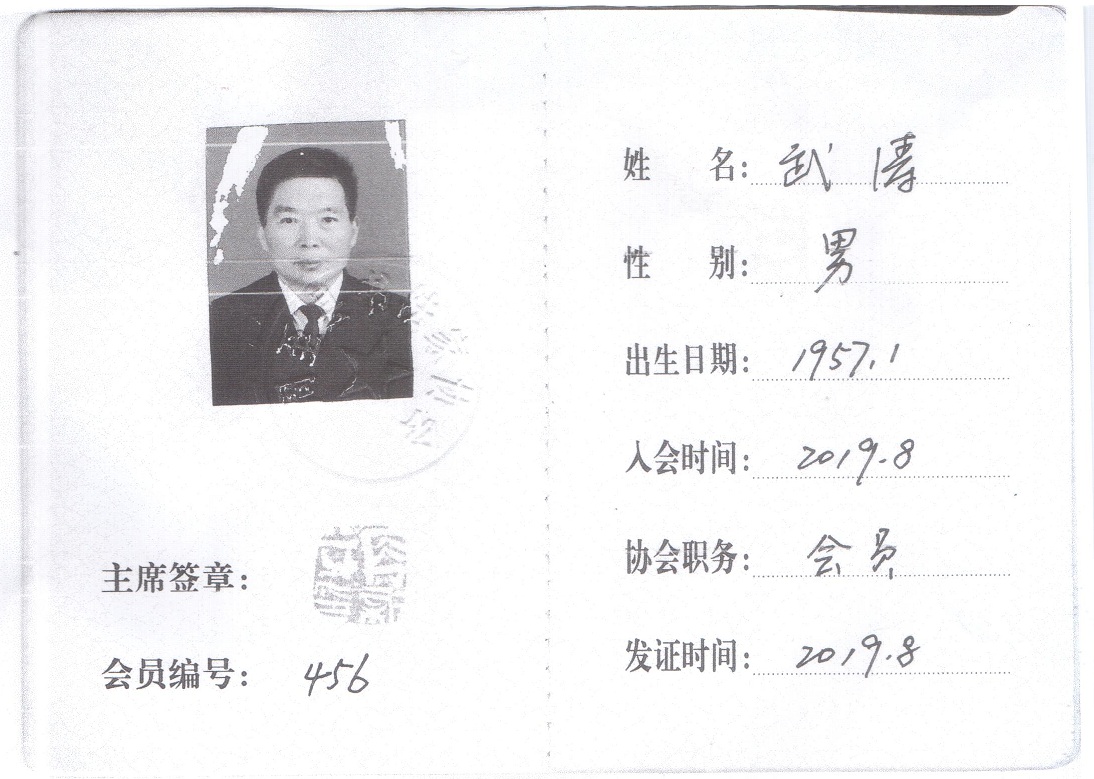 主席签章：
会员编号： 456
姓 名： 武涛
性 别： 男
出生日期： 1957.1
入会时间： 2019.8
协会职务： 会员
发证时间： 2019.8